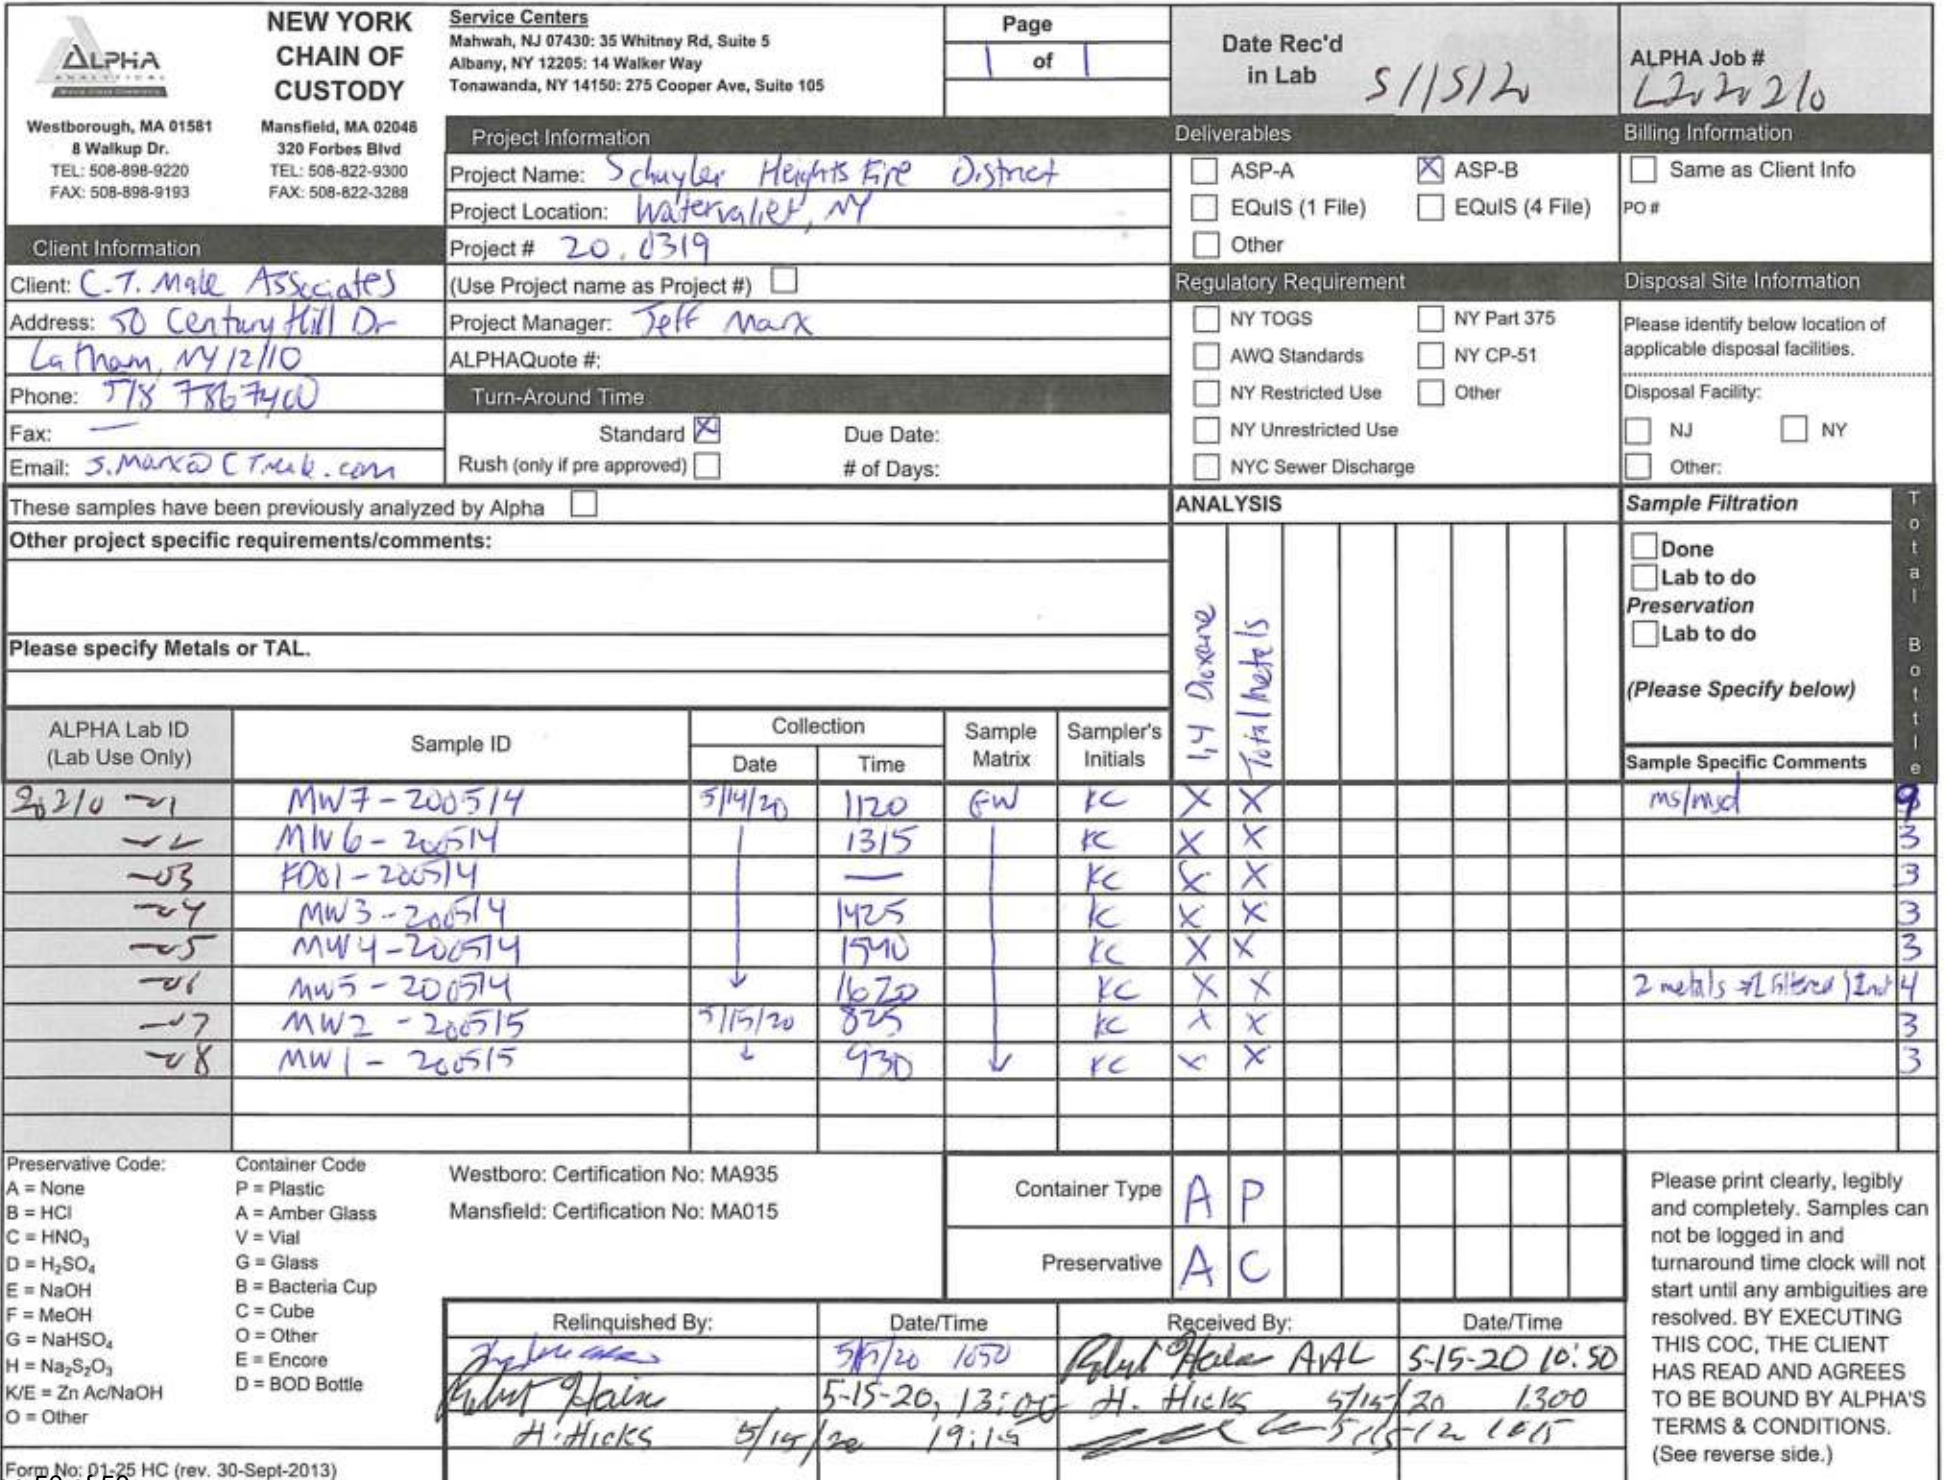 ALPHA
ANALYTICAL
NEW YORK
CHAIN OF
CUSTODY
Westborough, MA 01581
8 Walkup Dr.
TEL: 508-898-9220
FAX: 508-898-9193
Mansfield, MA 02048
320 Forbes Blvd
TEL: 508-822-9300
FAX: 508-822-3288
Service Centers
Mahwah, NJ 07430: 35 Whitney Rd, Suite 5
Albany, NY 12205: 14 Walker Way
Tonawanda, NY 14150: 275 Cooper Ave, Suite 105
Page
1 of 1
Date Rec'd
in Lab 5/15/20
ALPHA Job #
L2020210
Project Information
Project Name: Schuyler Heights Fire District
Project Location: Watervaliet, NY
Project # 20.0319
(Use Project name as Project #)
Project Manager: Jeff Marx
ALPHAQuote #:
Turn-Around Time
Standard X Due Date:
Rush (only if pre approved) # of Days:
Client Information
Client: C.T. Male Associates
Address: 50 Century Hill Dr
Latham, NY 12110
Phone: 518 7867400
Fax: —
Email: j.marx@
Deliverables
ASP-A X ASP-B
EQuIS (1 File) EQuIS (4 File)
Other
Billing Information
Same as Client Info
PO #
Regulatory Requirement
NY TOGS NY Part 375
AWQ Standards NY CP-51
NY Restricted Use Other
NY Unrestricted Use
NYC Sewer Discharge
Disposal Site Information
Please identify below location of
applicable disposal facilities.
Disposal Facility:
NJ NY
Other:
These samples have been previously analyzed by Alpha
Other project specific requirements/comments:
Please specify Metals or TAL.
ANALYSIS
1,4 Dioxane
Total Metals
Sample Filtration
Done
Lab to do
Preservation
Lab to do
(Please Specify below)
Sample Specific Comments
Total Bottle
ALPHA Lab ID
(Lab Use Only)
Sample ID
Collection
Date Time
Sample
Matrix
Sampler's
Initials
20210 -01 MW7-200514 5/14/20 1120 GW KC X X ms/msd 9
-02 MW6-200514 1315 KC X X 3
-03 FD01-200514 — KC X X 3
-04 MW3-200514 1425 KC X X 3
-05 MW4-200514 1540 KC X X 3
-06 MW5-200514 1620 KC X X 2 metals filtered 4
-07 MW2-200515 5/15/20 825 KC X X 3
-08 MW1-200515 930 KC X X 3
Preservative Code:
A = None
B = HCl
C = HNO3
D = H2SO4
E = NaOH
F = MeOH
G = NaHSO4
H = Na2S2O3
K/E = Zn Ac/NaOH
O = Other
Container Code
P = Plastic
A = Amber Glass
V = Vial
G = Glass
B = Bacteria Cup
C = Cube
O = Other
E = Encore
D = BOD Bottle
Westboro: Certification No: MA935
Mansfield: Certification No: MA015
Container Type A P
Preservative A C
Relinquished By: Date/Time Received By: Date/Time
5/15/20 1050 AAL 5-15-20 10:50
Robert Hain 5-15-20, 13:00 H. Hicks 5/15/20 1300
H. Hicks 5/15/20 19:15
Please print clearly, legibly
and completely. Samples can
not be logged in and
turnaround time clock will not
start until any ambiguities are
resolved. BY EXECUTING
THIS COC, THE CLIENT
HAS READ AND AGREES
TO BE BOUND BY ALPHA'S
TERMS & CONDITIONS.
(See reverse side.)
Form No: 01-25 HC (rev. 30-Sept-2013)